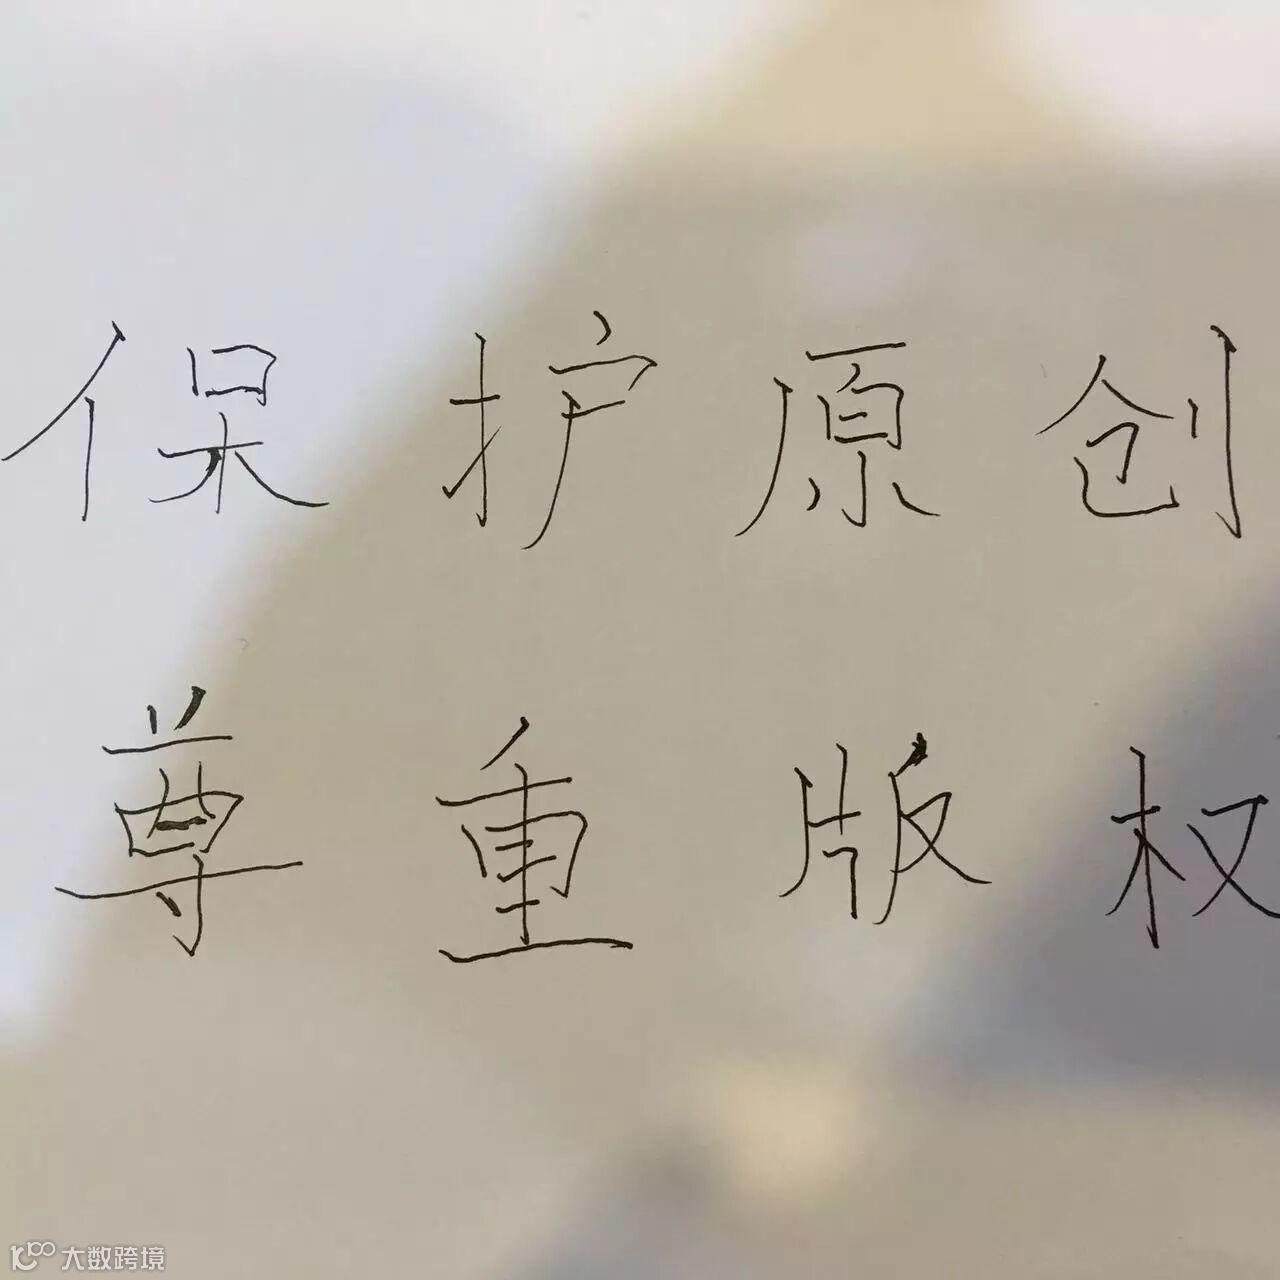 保护原创
尊重版权
大数跨境